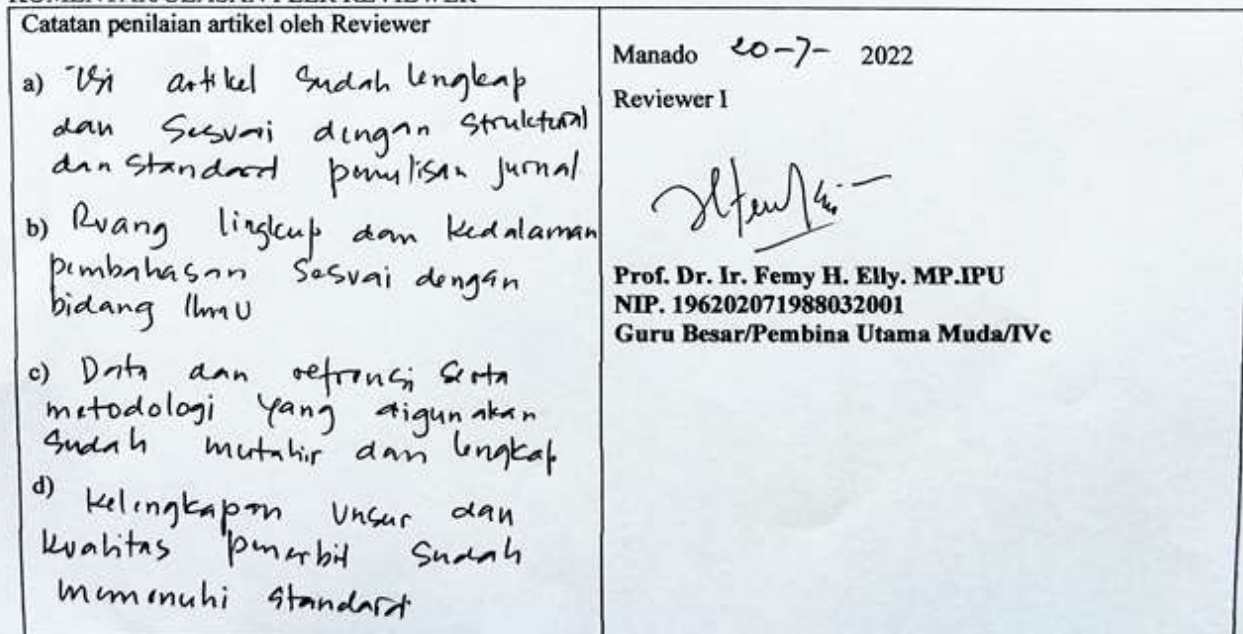 KOMENTAR ULASAN PEER REVIEWER
Catatan penilaian artikel oleh Reviewer
a) Isi artikel sudah lengkap
dan Sesuai dengan struktural
dan Standard penulisan jurnal
b) Ruang lingkup dan kedalaman
pembahasan Sesuai dengan
bidang Ilmu
c) Data dan refrensi serta
metodologi yang digunakan
sudah mutahir dan lengkap
d) Kelengkapan unsur dan
kualitas penerbit sudah
memenuhi standard
Manado 20-7- 2022
Reviewer I
Prof. Dr. Ir. Femy H. Elly. MP.IPU
NIP. 196202071988032001
Guru Besar/Pembina Utama Muda/IVc